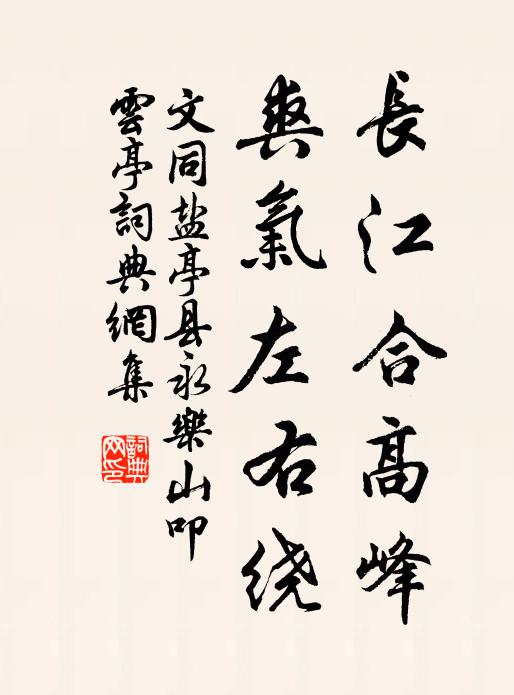 長江合高峰
爽氣左右绕
文同盐亭县永樂山叩
雲亭詞典網集
詞典网印